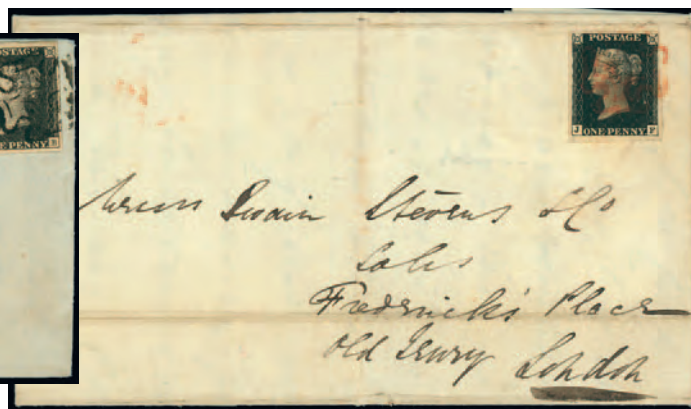 POSTAGE
ONE PENNY
E PENNY
POSTAGE
J ONE PENNY F
Messrs Swain Stevens & Co
Solrs
Frederick's Place
Old Jewry London